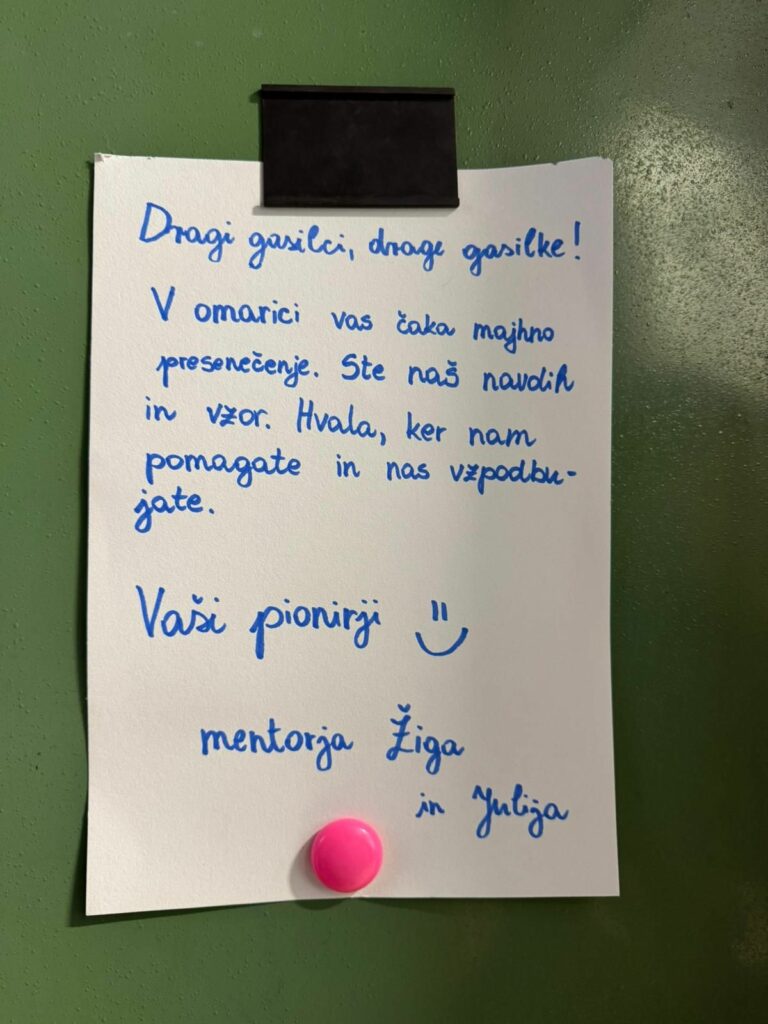 Dragi gasilci, drage gasilke!
V omarici vas čaka majhno
presenečenje. Ste naš navdih
in vzor. Hvala, ker nam
pomagate in nas vzpodbu-
jate.
Vaši pionirji
mentorja Žiga
in Julija